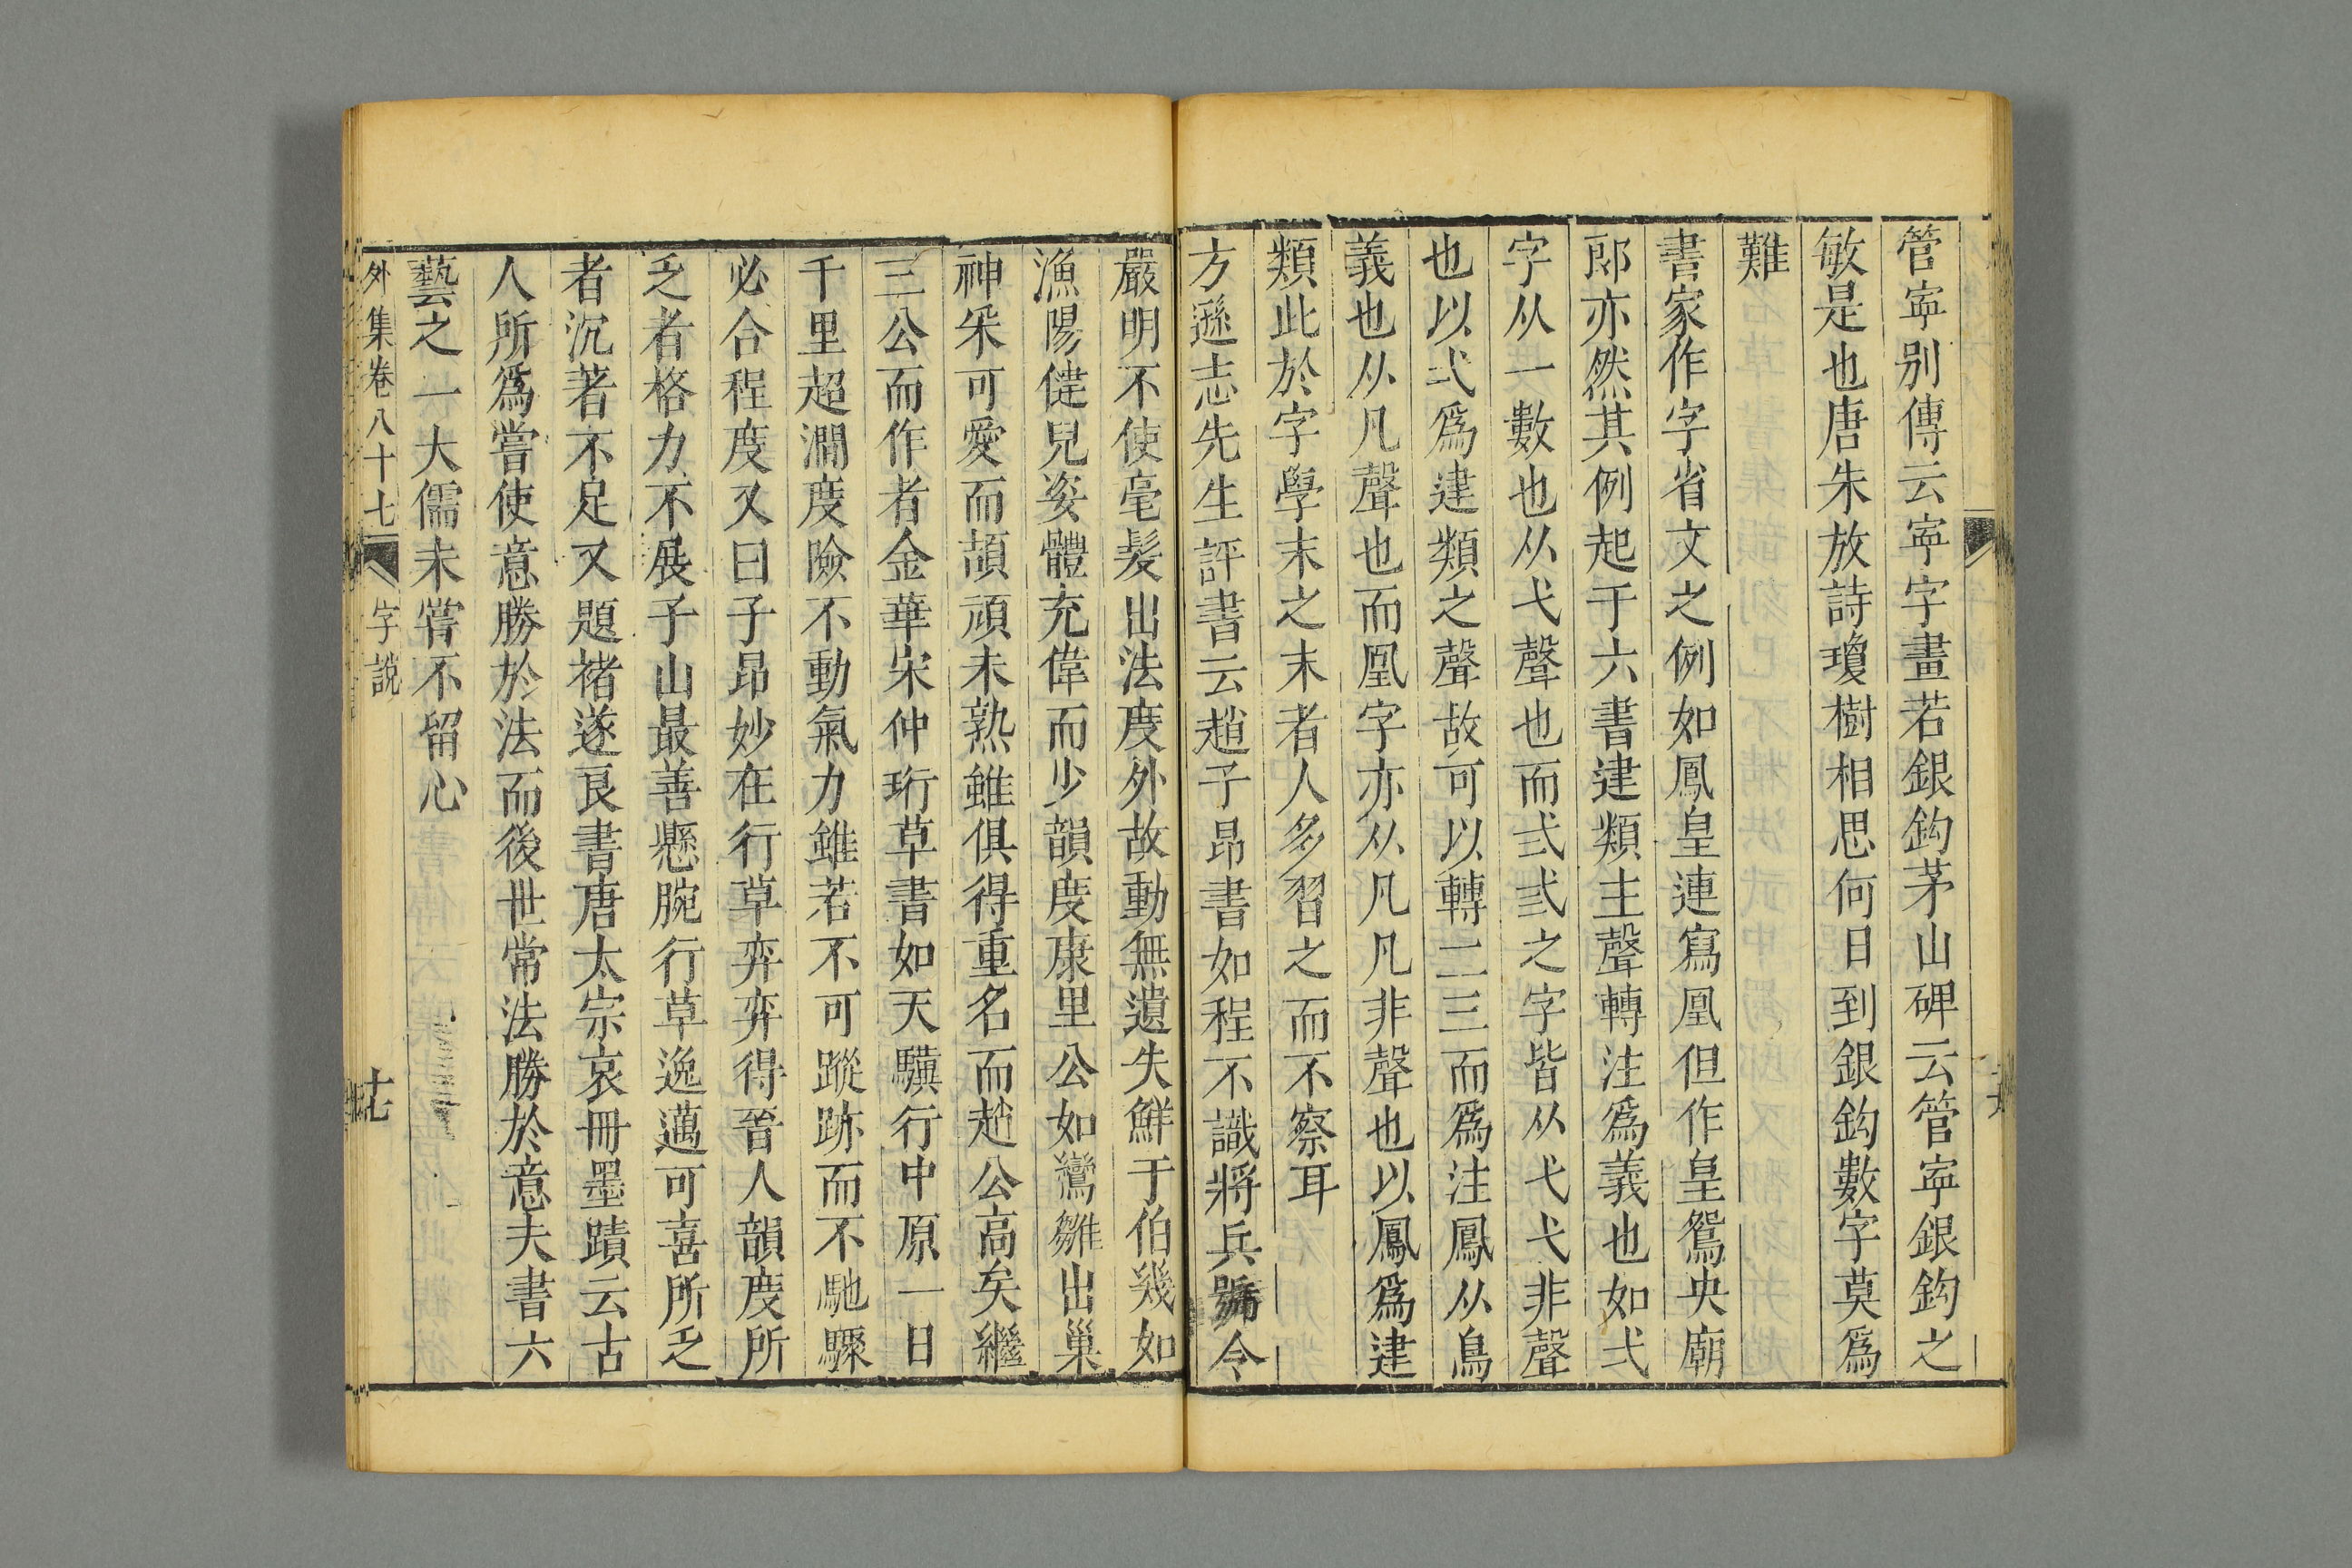 管寗别傳云寗字畫若銀鈎茅山碑云管寗銀鈎之
敏是也唐朱放詩瓊樹相思何日到銀鈎數字莫爲
難
書家作字省文之例如鳳皇連寫凰但作皇鴛央廟
郎亦然其例起于六書建類主聲轉注爲義也如弌
字从一數也从弋聲也而弍弎之字皆从弋弋非聲
也以弌爲建類之聲故可以轉二三而爲注鳳从鳥
義也从凡聲也而凰字亦从凡凡非聲也以鳳爲建
類此於字學末之末者人多習之而不察耳
方遜志先生評書云趙子昂書如程不識將兵號令
嚴明不使毫髮出法度外故動無遺失鮮于伯幾如
漁陽健兒姿體充偉而少韻度康里公如鸞雛出巢
神采可愛而頡頏未熟雖俱得重名而趙公高矣繼
三公而作者金華宋仲珩草書如天驥行中原一日
千里超澗度險不動氣力雖若不可蹤跡而不馳驟
必合程度又曰子昂妙在行草弈弈得晉人韻度所
乏者格力不展子山最善懸腕行草逸邁可喜所乏
者沉著不足又題褚遂良書唐太宗哀冊墨蹟云古
人所爲嘗使意勝於法而後世常法勝於意夫書六
藝之一大儒未嘗不留心
外集卷八十七 字說 十七